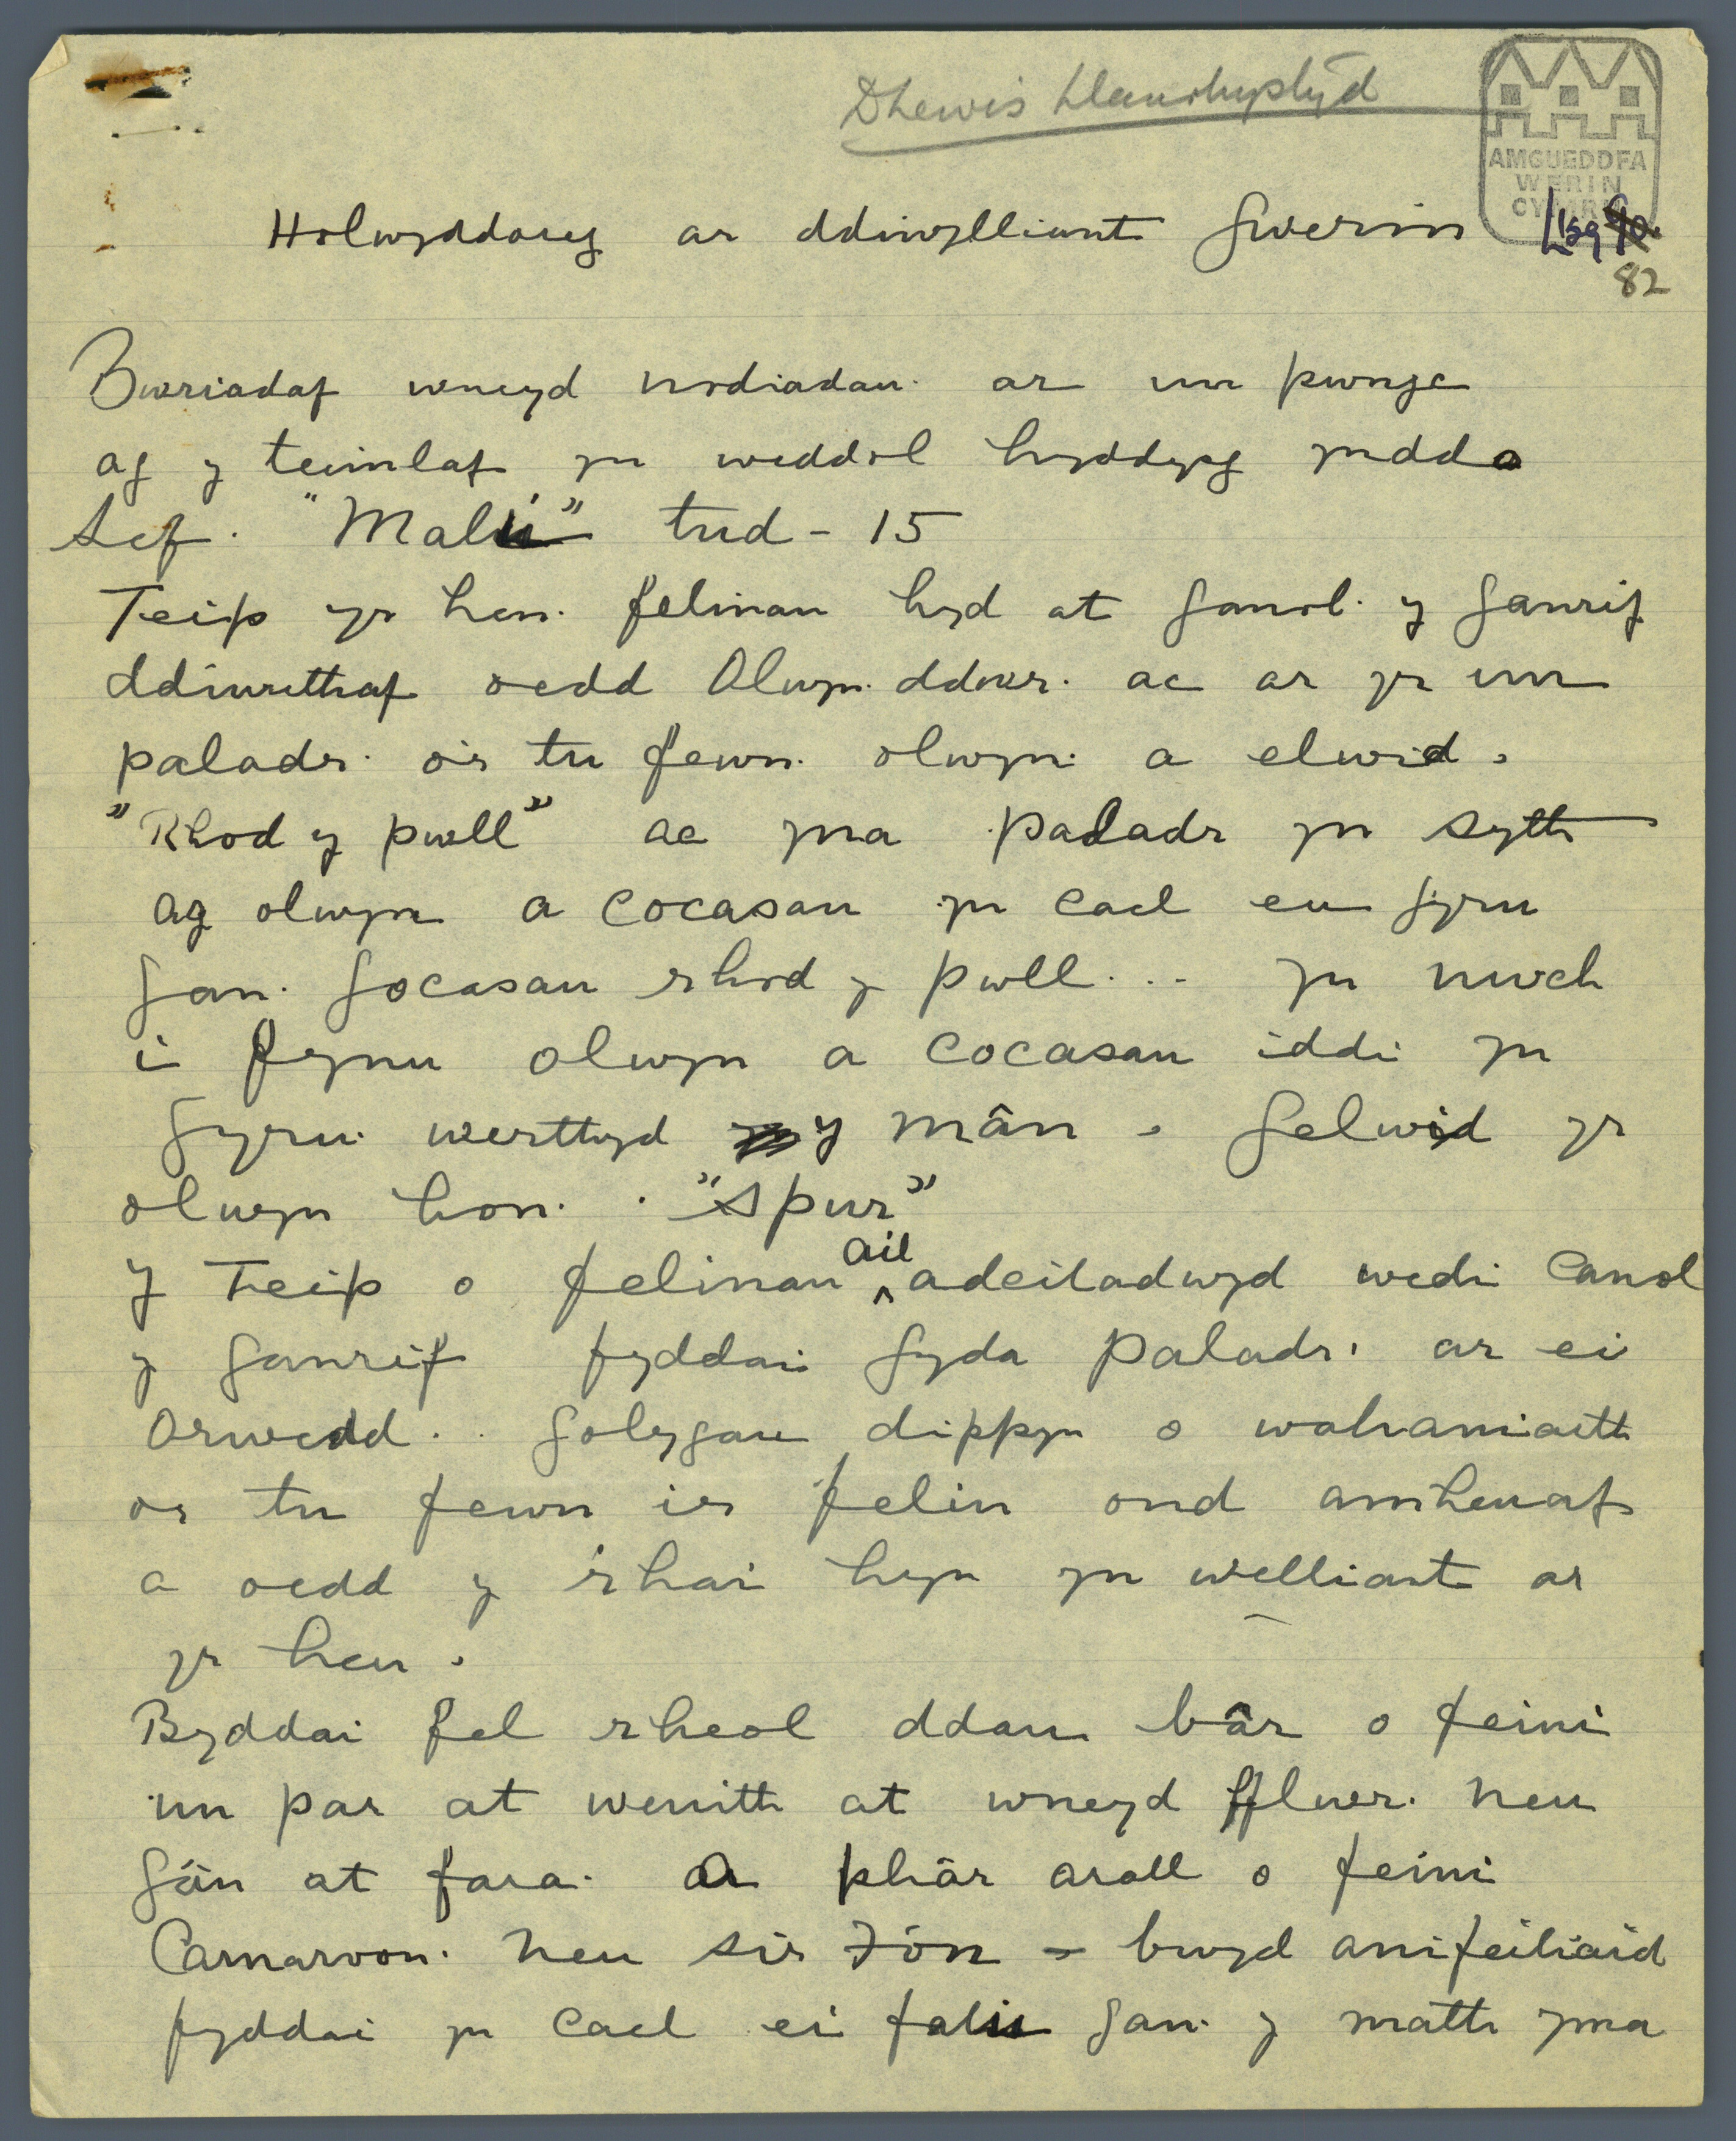 D Lewis Llanrhystyd
AMGUEDDFA
WERIN
CYMRU
Holwyddoreg ar ddiwylliant Gwerin Llsg 90.
82
Bwriadaf wneyd nodiadau ar un pwngc
ag y teimlaf yn weddol hyddysg ynddo
Sef. "Malu" tud - 15
Teip yr hen felinau hyd at ganol y ganrif
ddiwethaf oedd Olwyn ddwr. ac ar yr un
paladr o'r tu fewn olwyn a elwid.
"Rhod y pwll" ac yna paladr yn syth
ag olwyn a cocasau yn cael eu gyru
gan gocasau rhod y pwll... yn uwch
i fynu olwyn a cocasau iddi yn
gyru werthyd y mân. Gelwid yr
olwyn hon. "Spur"
y Teip o felinau ail adeiladwyd wedi canol
y ganrif fyddai gyda paladr ar ei
orwedd.. golygau dippyn o wahaniaeth
or tu fewn ir felin ond amheuaf
a oedd y rhai hyn yn welliant ar
yr hen.
Byddai fel rheol ddau bâr o feini
un par at wenith at wneyd fflwr. neu
gân at fara. a phâr arall o feini
Carnarvon. neu sir Fôn - bwyd anifeiliaid
fyddai yn cael ei falu gan y math yma